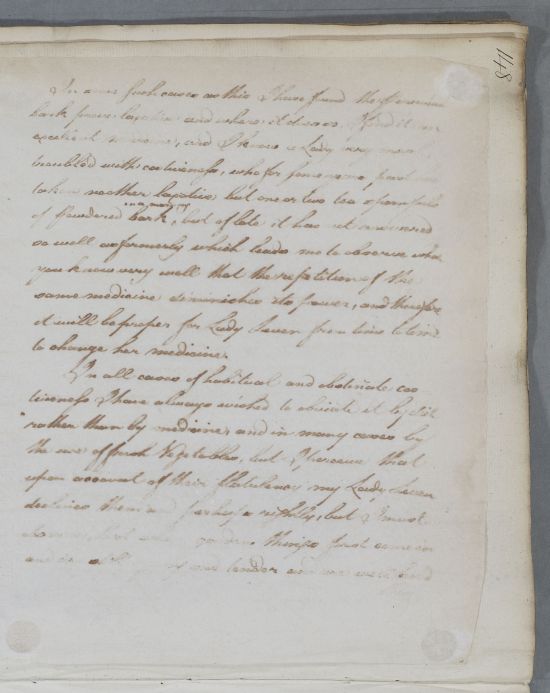 148
In some such cases as this I have found the Peruvian
bark prove laxative and where it does so I find it an
excellent medicine, and I know a Lady very much
troubled with costiveness, who for some years past has
taken no other laxative but one or two tea spoonfuls
of Powdered bark, but of late it has not answered
so well as formerly which leads me to observe what
you know very well that the repetition of the
same medicine diminishes its power, and therefore
it will be proper for Lady Leven from time to time
to change her medicine.
In all cases of habitual and obstinate cos
tiveness I have always wished to obviate it by diet
rather than by medicine, and in many cases by
the use of fresh Vegetables, but I perceive that
upon account of their flatulency my Lady Leven
declines them and perhaps rightly, but I must
things just come in
and are tender and are well